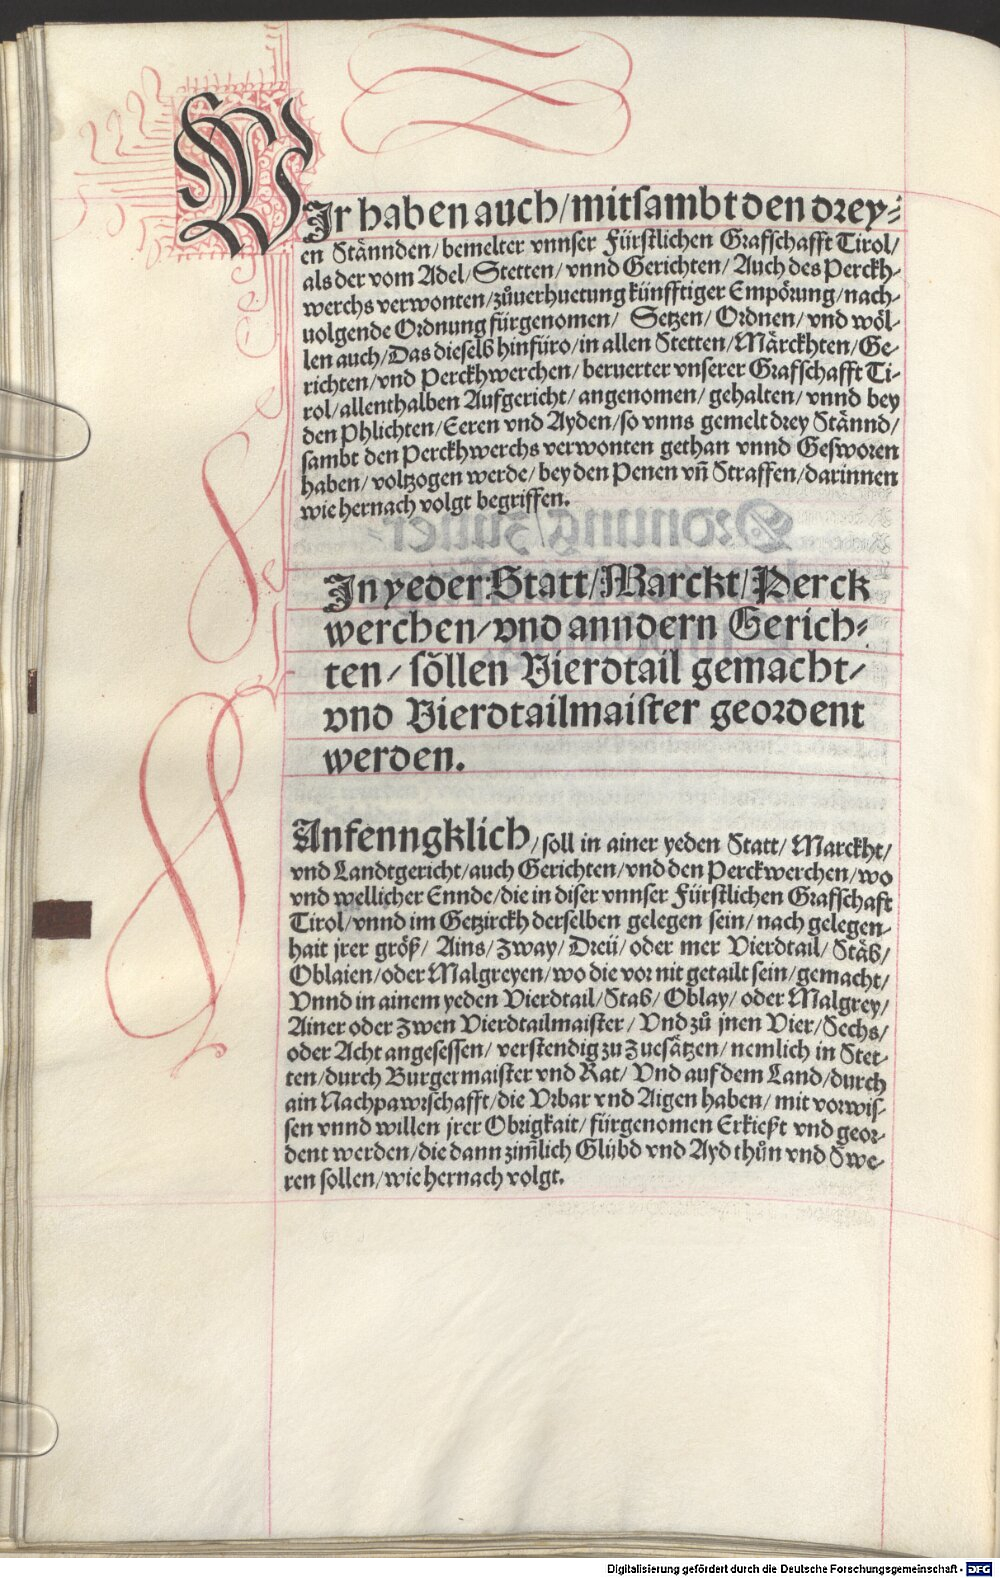 WIr haben auch/ mitsambt den drey⸗
en Stännden/ bemelter vnnser Fürstlichen Grafschafft Tirol/
als der vom Adel/ Stetten/ vnnd Gerichten/ Auch des Perckh⸗
werchs verwonten/ zůuerhuetung künfftiger Empörung/ nach⸗
uolgende Ordnung fürgenomen/ Setzen/ Ordnen/ vnd wöl⸗
len auch/ Das dieselb hinfüro/ in allen Stetten/ Märckhten/ Ge⸗
richten/ vnd Perckhwerchen/ beruerter vnserer Grafschafft Ti⸗
rol/ allenthalben Aufgericht/ angenomen/ gehalten/ vnnd bey
den Phlichten/ Eeren vnd Ayden/ so vnns gemelt drey Stännd/
sambt den Perckhwerchs verwonten gethan vnnd Gesworen
haben/ voltzogen werde/ bey den Penen vñ Straffen/ darinnen
wie hernach volgt begriffen.
In yeder Statt/ Marckt/ Perck
werchen/ vnd anndern Gerich⸗
ten/ söllen Vierdtail gemacht/
vnd Vierdtailmaister geordent
werden.
Anfenngklich/ soll in ainer yeden Statt/ Marckht/
vnd Landtgericht/ auch Gerichten/ vnd den Perckwerchen/ wo
vnd wellicher Ennde/ die in diser vnnser Fürstlichen Grafschaft
Tirol/ vnnd im Getzirckh derselben gelegen sein/ nach gelegen⸗
hait jrer größ/ Ains/ Zway/ Dreü/ oder mer Vierdtail/ Stäb/
Oblaien/ oder Malgreyen/ wo die vor nit getailt sein/ gemacht/
Vnnd in ainem yeden Vierdtail/ Stab/ Oblay/ oder Malgrey/
Ainer oder Zwen Vierdtailmaister/ Vnd zů jnen Vier/ Sechs/
oder Acht angesessen/ verstendig zu Zuesätzen/ nemlich in Stet⸗
ten/ durch Burgermaister vnd Rat/ Vnd auf dem Land/ durch
ain Nachpawrschafft/ die Vrbar vnd Aigen haben/ mit vorwis⸗
sen vnnd willen jrer Obrigkait/ fürgenomen Erkießt vnd geor⸗
dent werden/ die dann zim̃lich Glübd vnd Ayd thůn vnd Swe⸗
ren sollen/ wie hernach volgt.
Digitalisierung gefördert durch die Deutsche Forschungsgemeinschaft - DFG